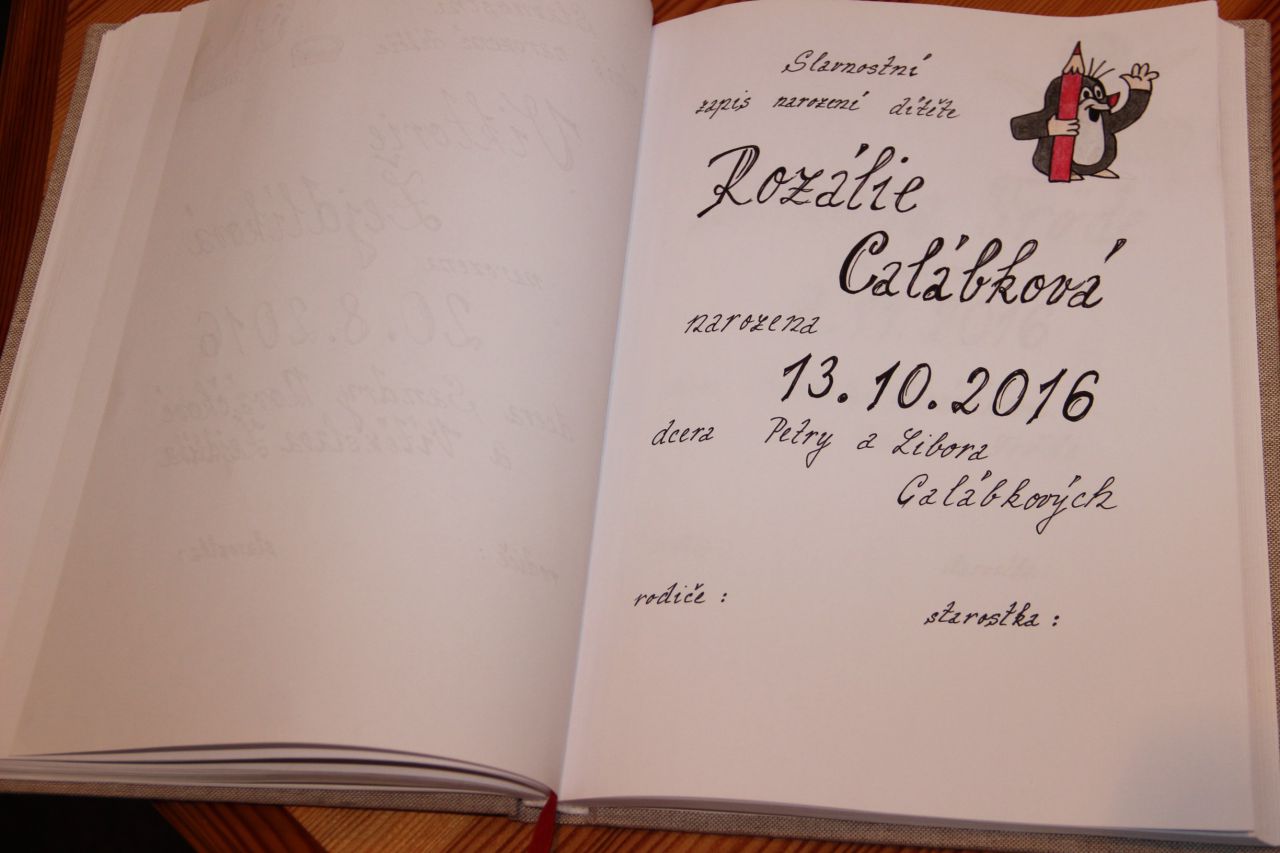 Slavnostní
zápis narození dítěte
Rozálie
Calábková
narozena
13.10.2016
dcera Petry a Libora
Calábkových
rodiče :
starostka :